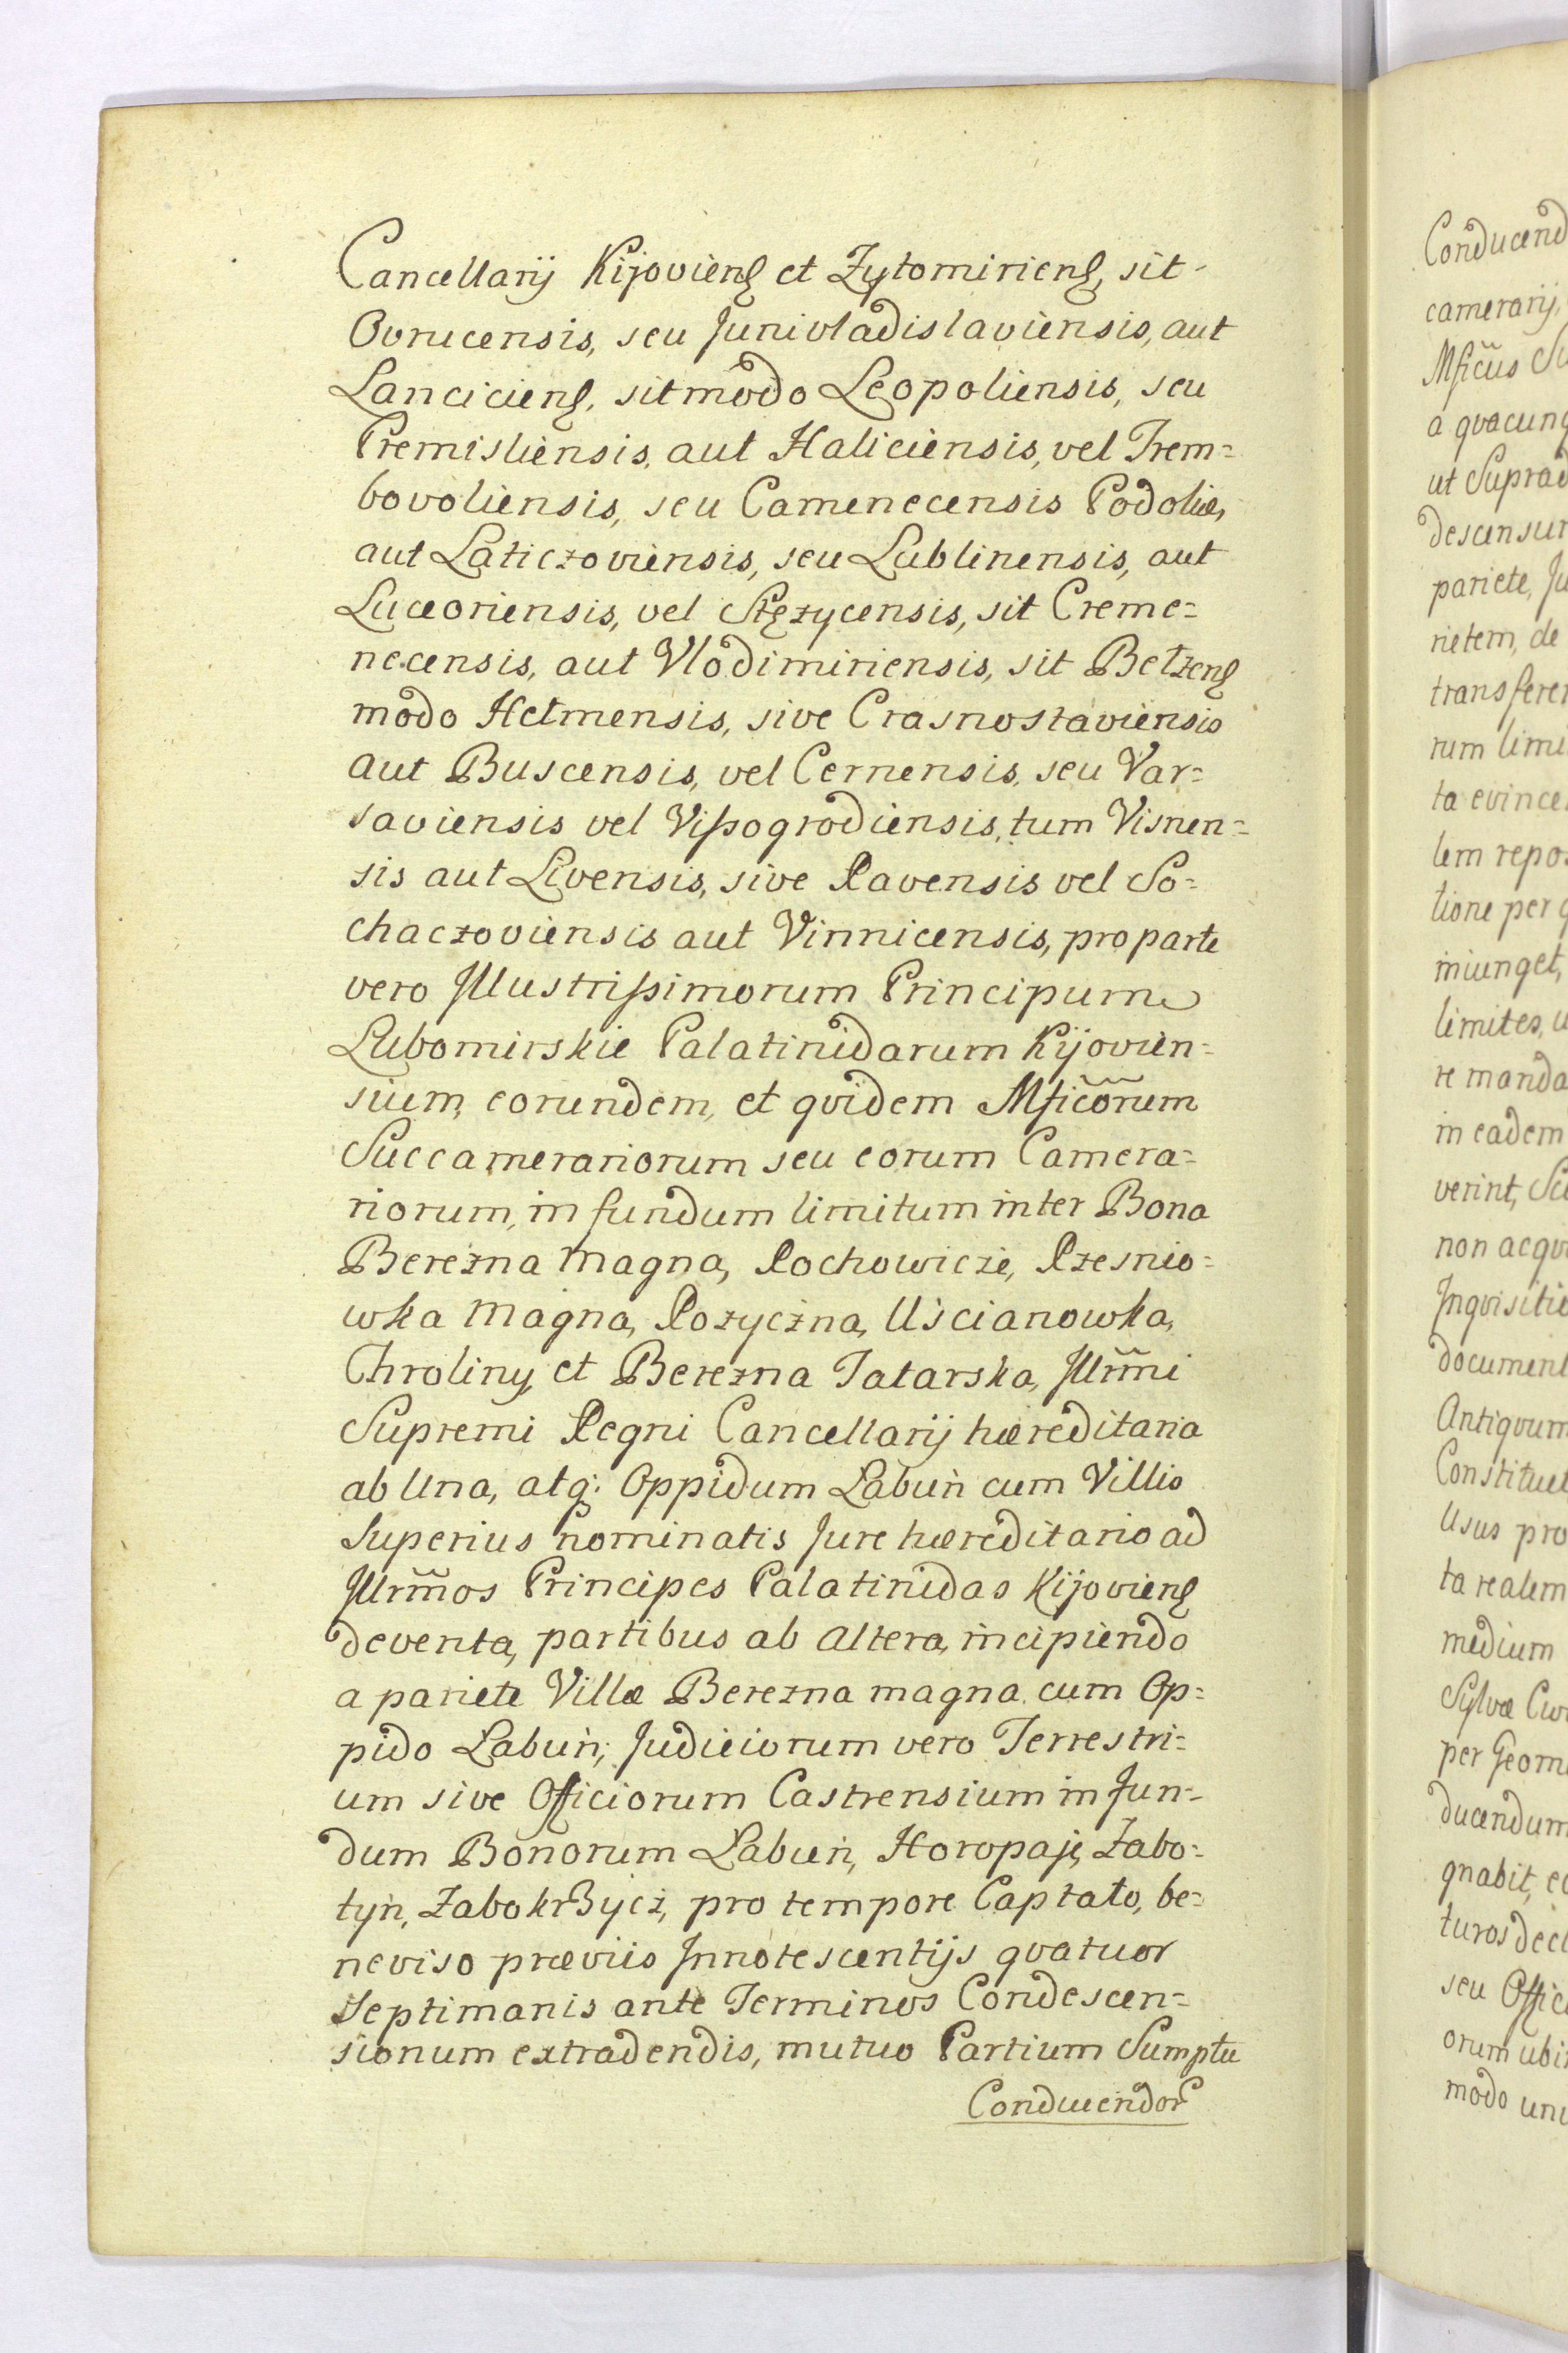 Cancellarij Kijoviens et Zytomiriens, sit
Ovrucensis, seu Junivladislaviensis, aut
Lanciciens, sit modo Leopoliensis, seu
Premisliensis, aut Haliciensis, vel Trem=
bovoliensis, seu Camenecensis Podoliæ,
aut Laticzoviensis, seu Lublinensis, aut
Luceoriensis, vel Stęzycensis, sit Creme=
necensis, aut Vlodimiriensis, sit Betzens
modo Helmensis, sive Crasnostaviensis
aut Buscensis, vel Cernensis, seu Var=
saviensis vel Vissogrodiensis, tum Visnen=
sis aut Livensis, sive Ravensis vel So=
chaczoviensis aut Vinnicensis, pro parte
vero Illustrissimorum Principum
Lubomirskie Palatinidarum Kijovien=
sium, eorundem, et qvidem Mficõrum
Succamerariorum seu eorum Camera=
riorum, in fundum limitum inter Bona
Berezna Magna, Rochowicze, Rzesnio=
wka Magna, Rozyczna, Uscianowka,
Chroliny, et Berezna Tatarska, Illrm̃i
Supremi Regni Cancellarij hæreditaria
ab Una, atq: Oppidum Labuń cum Villis
Superius nominatis Jure hæreditario ad
Illrm̃os Principes Palatinidas Kijoviens
deventa, partibus ab altera, incipiendo
a pariete Villæ Berezna magna cum Op=
pido Labuń; Judiciorum vero Terrestri=
um sive Officiorum Castrensium in Fun=
dum Bonorum Labuń, Horopaje, Zabo=
tyń, Zabokrzycz, pro tempore Captato, be=
neviso præviis Innotescentijs qvatuor
Septimanis ante Terminos Condescen=
sionum extradendis, mutuo Partium Sumptu
Conducendor
Conducend
camerarij,
Mficũs Su
a qvacunq
ut Suprad
descensur
pariete, Ju
rietem, de
transferen
rum limi
ta evince
lem repos
tione per q
iniunget,
limites, u
re manda
in eadem
verint, Su
non acqvi
Inqvisitio
document
Antiqvum
Constituet
Usus pro
ta realem
medium
Sylvæ
per Geom
ducendum
gnabit, eo
turos decl
seu Offici
orum ubi
modo uni